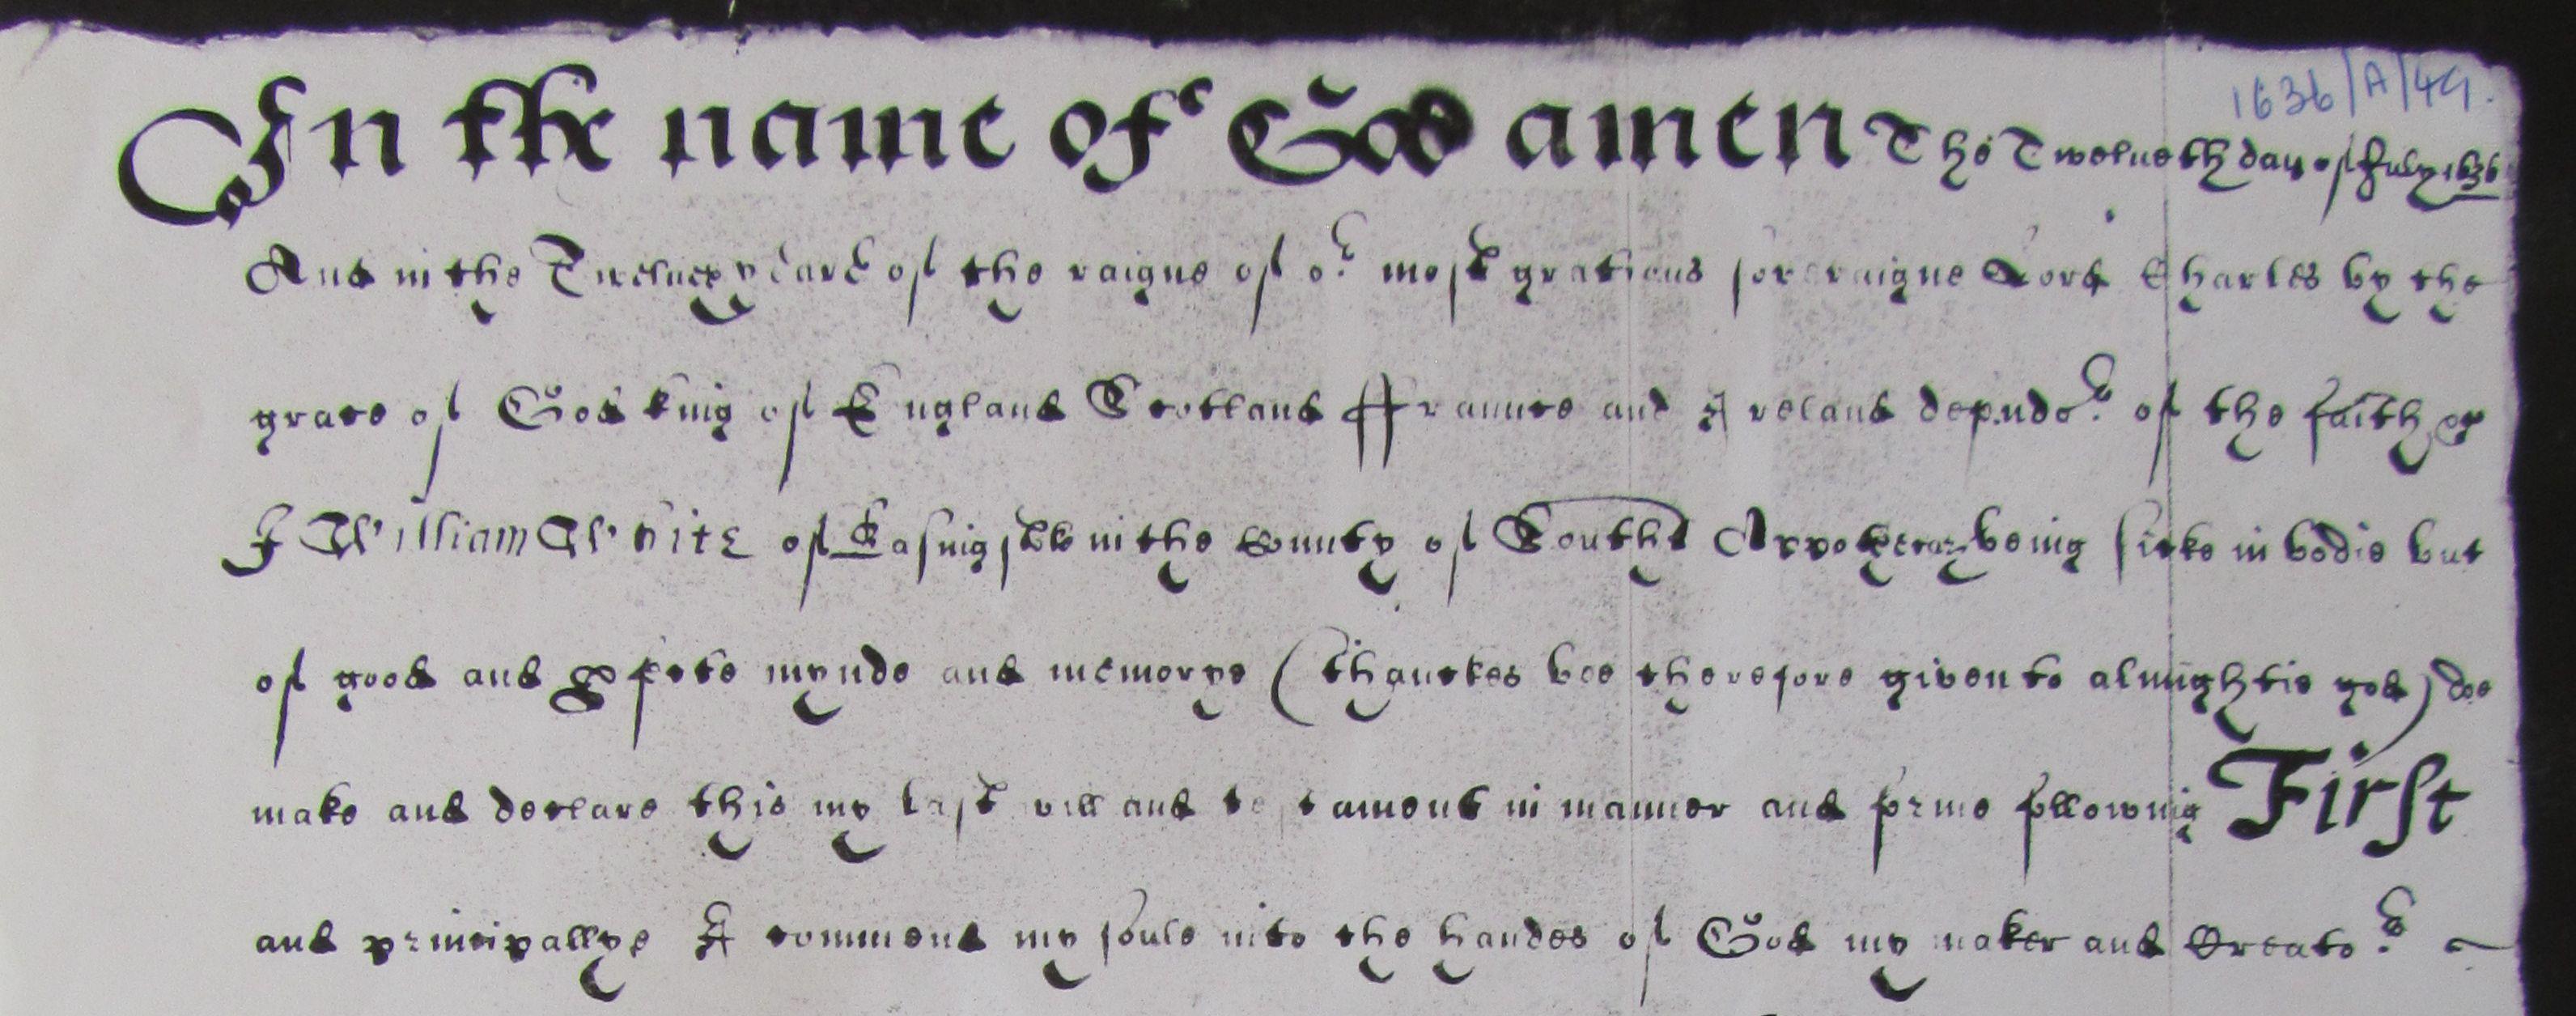 1636/A/49.
In the name of God amen The Twelueth day of July 1636
And in the Twelueth yeare of the raigne of or most gratious soveraigne Lord Charles by the
grace of God king of England Scotland ffraunce and Ireland defendor of the faith &c
I William White of Basingstoke in the County of Southt Appothecary being sicke in bodie but
of good and pfecte mynde and memorye (thanckes bee therefore given to almightie god) doe
make and declare this my last will and testament in manner and forme followinge First
and principallye I commend my soule into the handes of God my maker and Creator